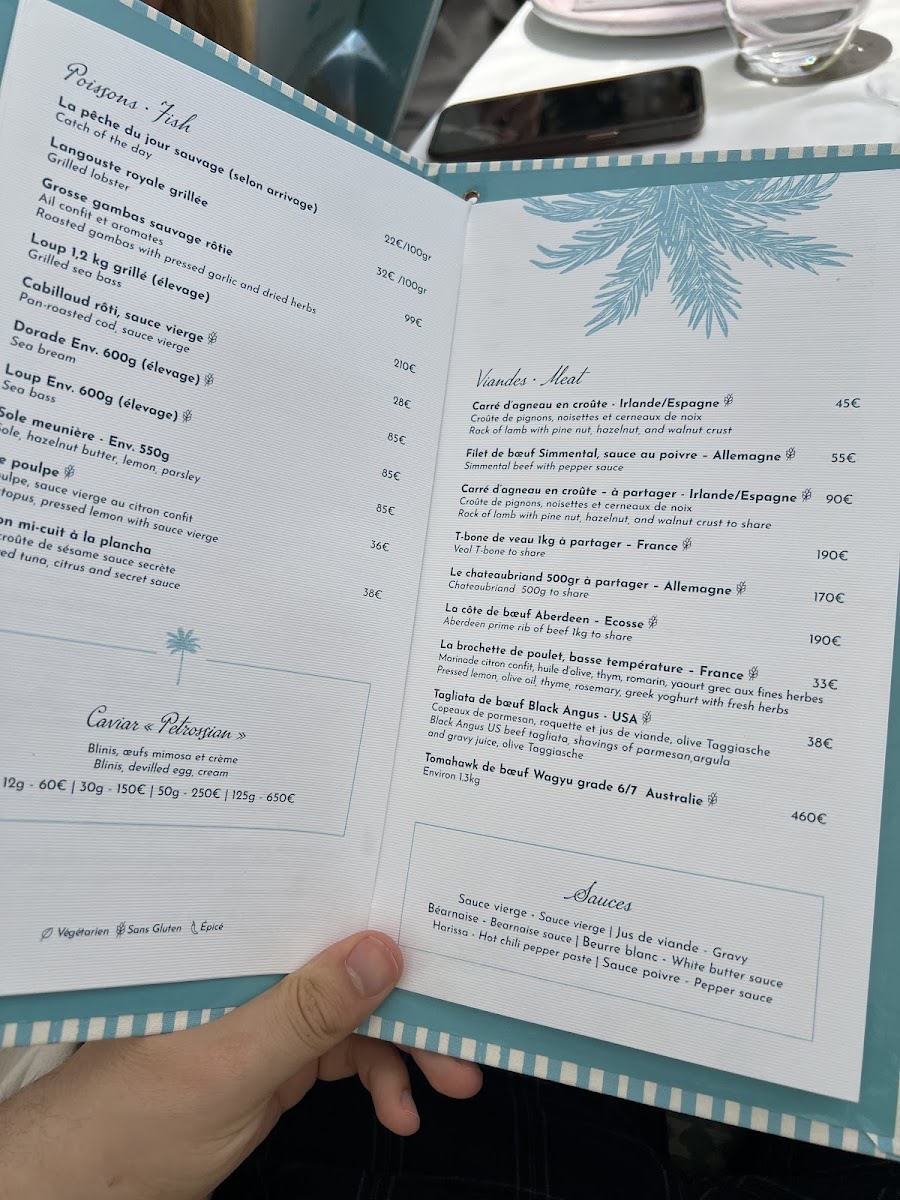 Poissons · Fish
La pêche du jour sauvage (selon arrivage)
Catch of the day
22€/100gr
Langouste royale grillée
Grilled lobster
32€ /100gr
Grosse gambas sauvage rôtie
Ail confit et aromates
Roasted gambas with pressed garlic and dried herbs
99€
Loup 1,2 kg grillé (élevage)
Grilled sea bass
210€
Cabillaud rôti, sauce vierge
Pan-roasted cod, sauce vierge
28€
Dorade Env. 600g (élevage)
Sea bream
85€
Loup Env. 600g (élevage)
Sea bass
85€
Sole meunière - Env. 550g
Sole, hazelnut butter, lemon, parsley
85€
poulpe
sauce vierge au citron confit
pressed lemon with sauce vierge
36€
mi-cuit à la plancha
croûte de sésame sauce secrète
tuna, citrus and secret sauce
38€
Caviar « Petrossian »
Blinis, œufs mimosa et crème
Blinis, devilled egg, cream
12g - 60€ | 30g - 150€ | 50g - 250€ | 125g - 650€
Végétarien Sans Gluten Épicé
Viandes · Meat
Carré d'agneau en croûte - Irlande/Espagne 45€
Croûte de pignons, noisettes et cerneaux de noix
Rack of lamb with pine nut, hazelnut, and walnut crust
Filet de bœuf Simmental, sauce au poivre – Allemagne 55€
Simmental beef with pepper sauce
Carré d'agneau en croûte – à partager - Irlande/Espagne 90€
Croûte de pignons, noisettes et cerneaux de noix
Rack of lamb with pine nut, hazelnut, and walnut crust to share
T-bone de veau 1kg à partager – France 190€
Veal T-bone to share
Le chateaubriand 500gr à partager – Allemagne 170€
Chateaubriand 500g to share
La côte de bœuf Aberdeen – Ecosse 190€
Aberdeen prime rib of beef 1kg to share
La brochette de poulet, basse température – France 33€
Marinade citron confit, huile d'olive, thym, romarin, yaourt grec aux fines herbes
Pressed lemon, olive oil, thyme, rosemary, greek yoghurt with fresh herbs
Tagliata de bœuf Black Angus - USA 38€
Copeaux de parmesan, roquette et jus de viande, olive Taggiasche
Black Angus US beef tagliata, shavings of parmesan,argula
and gravy juice, olive Taggiasche
Tomahawk de bœuf Wagyu grade 6/7 Australie
Environ 1.3kg
460€
Sauces
Sauce vierge - Sauce vierge | Jus de viande - Gravy
Béarnaise - Bearnaise sauce | Beurre blanc - White butter sauce
Harissa - Hot chili pepper paste | Sauce poivre - Pepper sauce